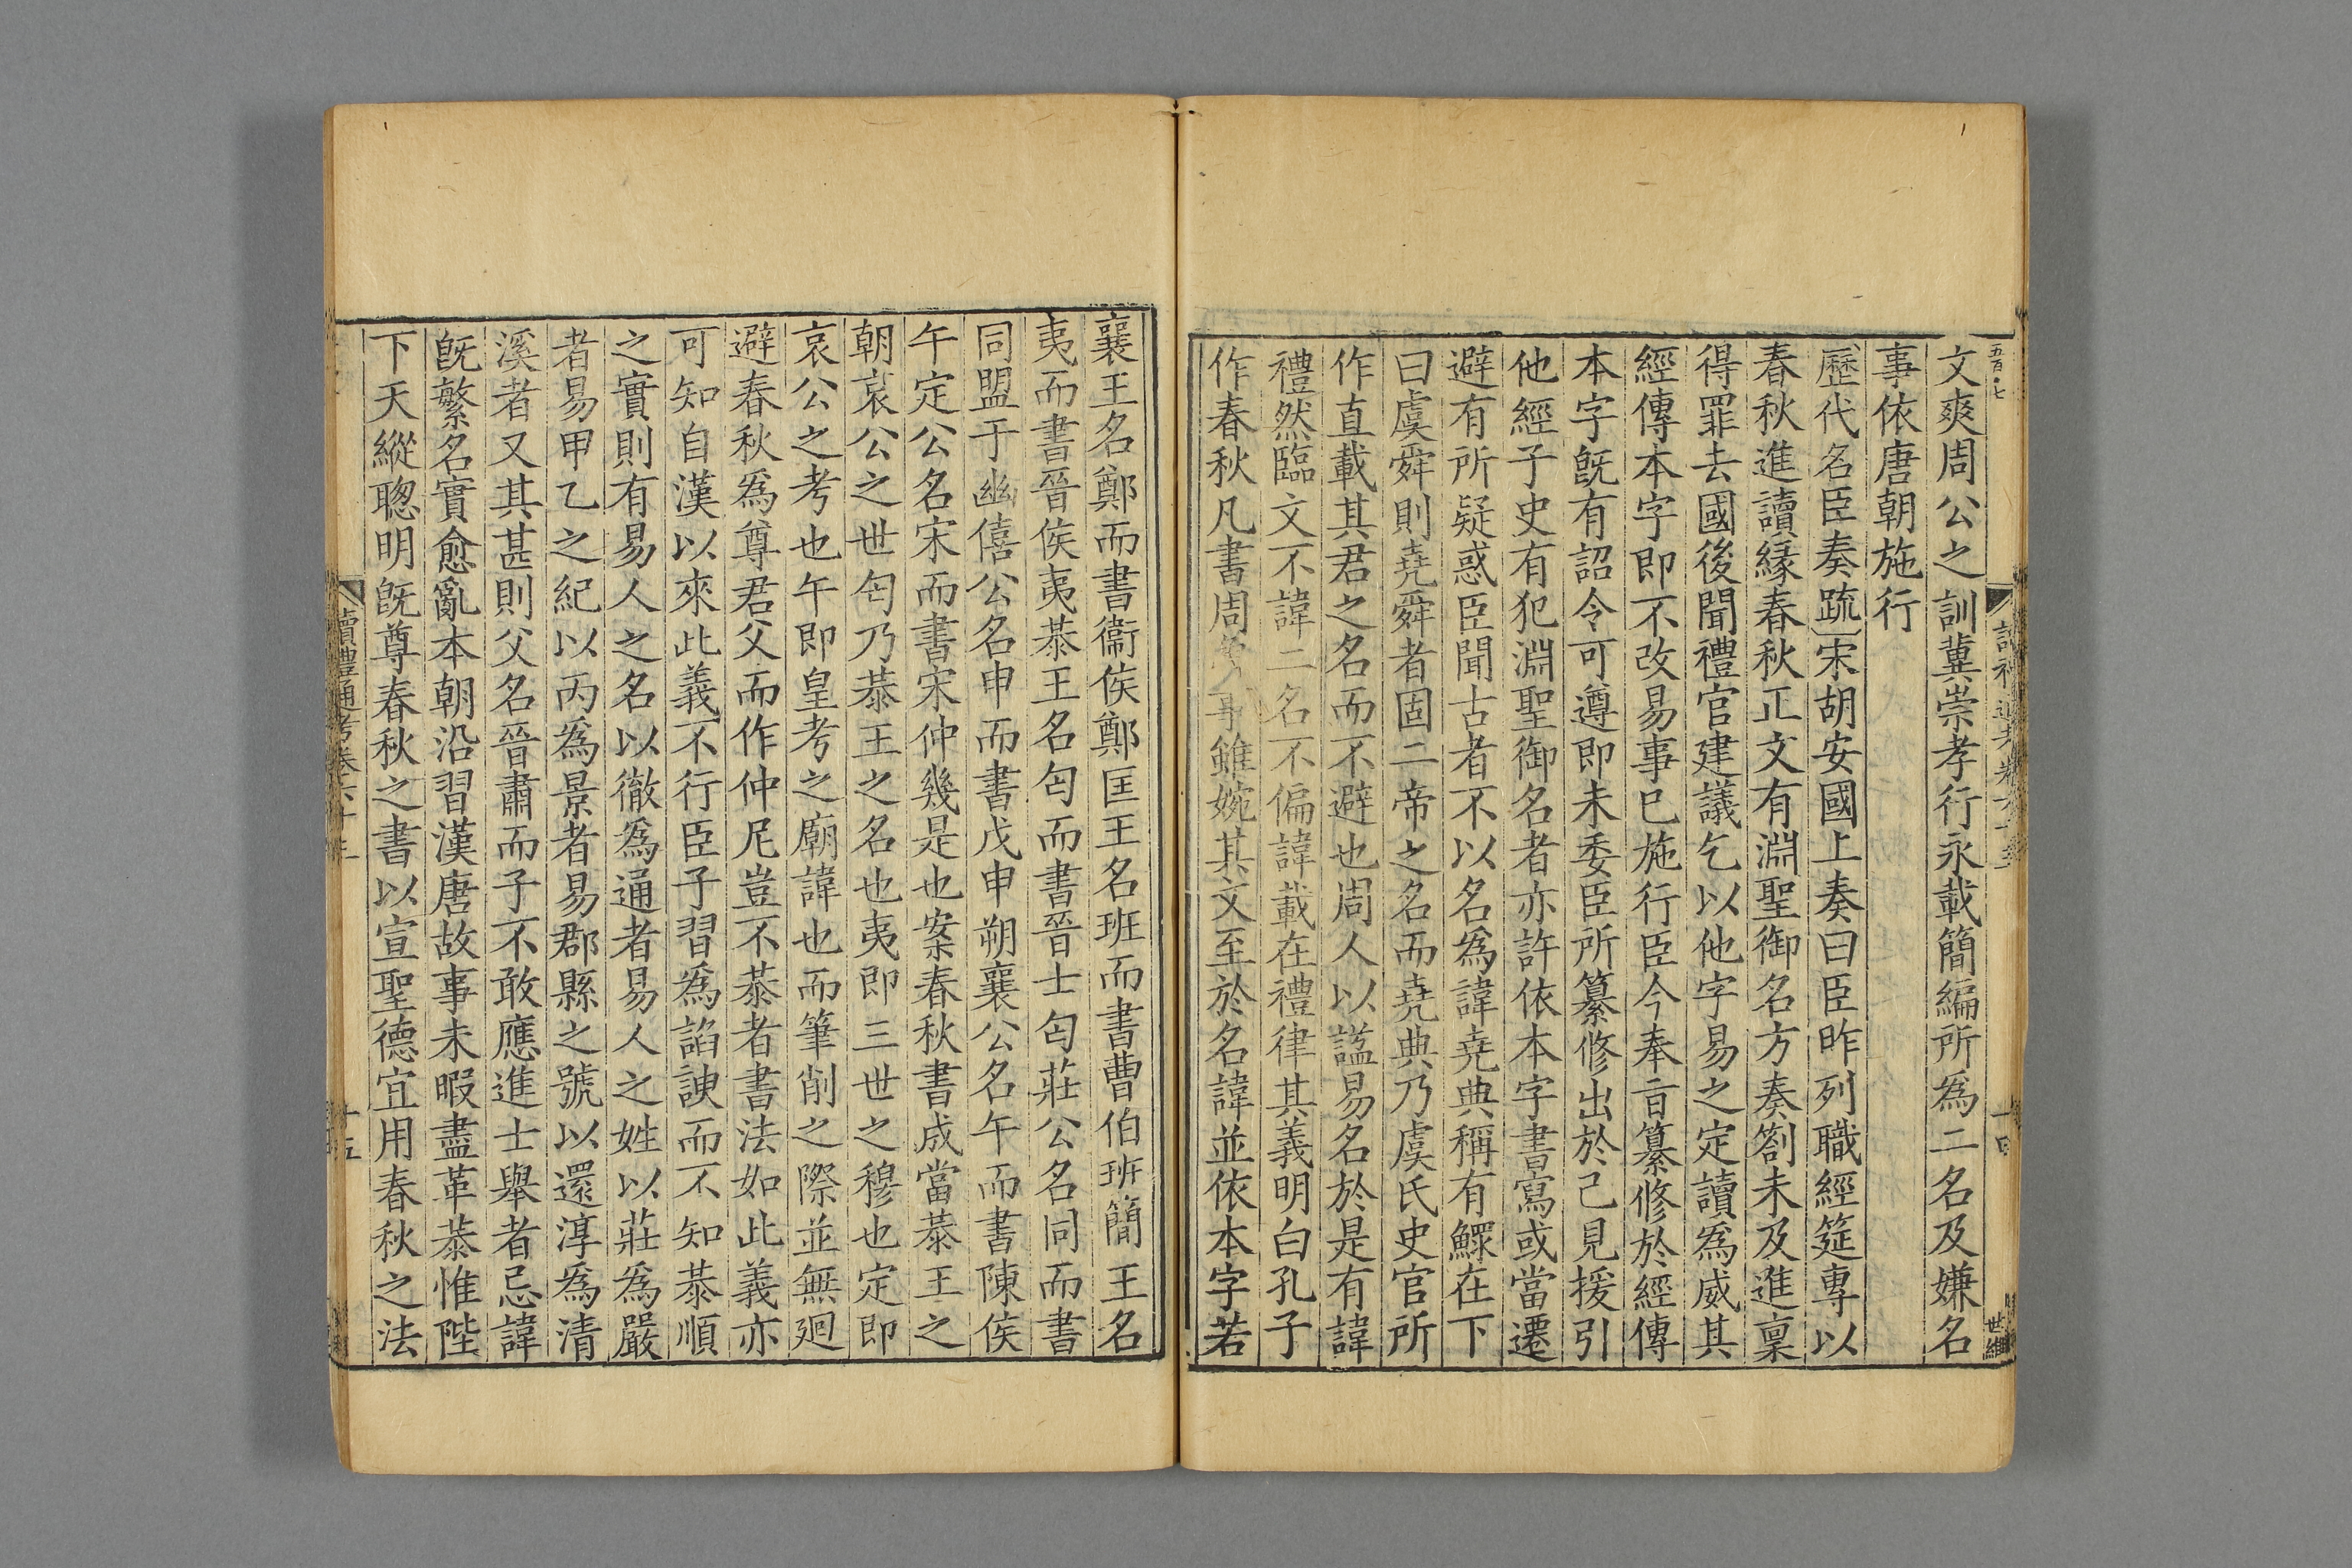 五百七
讀禮通考卷六十三
十四
世維
文爽周公之訓冀崇孝行永載簡編所爲二名及嫌名
事依唐朝施行
歷代名臣奏疏宋胡安國上奏曰臣昨列職經筵專以
春秋進讀緣春秋正文有淵聖御名方奏劄未及進稟
得罪去國後聞禮官建議乞以他字易之定讀爲威其
經傳本字即不改易事已施行臣今奉旨纂修於經傳
本字既有詔令可遵即未委臣所纂修出於己見援引
他經子史有犯淵聖御名者亦許依本字書寫或當遷
避有所疑惑臣聞古者不以名爲諱堯典稱有鰥在下
曰虞舜則堯舜者固二帝之名而堯典乃虞氏史官所
作直載其君之名而不避也周人以謚易名於是有諱
禮然臨文不諱二名不偏諱載在禮律其義明白孔子
作春秋凡書周事雖婉其文至於名諱並依本字若
襄王名鄭而書衞侯鄭匡王名班而書曹伯班簡王名
夷而書晉侯夷恭王名匄而書晉士匄莊公名同而書
同盟于幽僖公名申而書戊申朔襄公名午而書陳侯
午定公名宋而書宋仲幾是也案春秋書成當恭王之
朝哀公之世匄乃恭王之名也夷即三世之穆也定即
哀公之考也午即皇考之廟諱也而筆削之際並無廻
避春秋爲尊君父而作仲尼豈不恭者書法如此義亦
可知自漢以來此義不行臣子習爲諂諛而不知恭順
之實則有易人之名以徹爲通者易人之姓以莊爲嚴
者易甲乙之紀以丙爲景者易郡縣之號以還淳爲清
溪者又其甚則父名晉肅而子不敢應進士舉者忌諱
既繁名實愈亂本朝沿習漢唐故事未暇盡革恭惟陛
下天縱聰明既尊春秋之書以宣聖德宜用春秋之法
讀禮通考卷六十三
十五